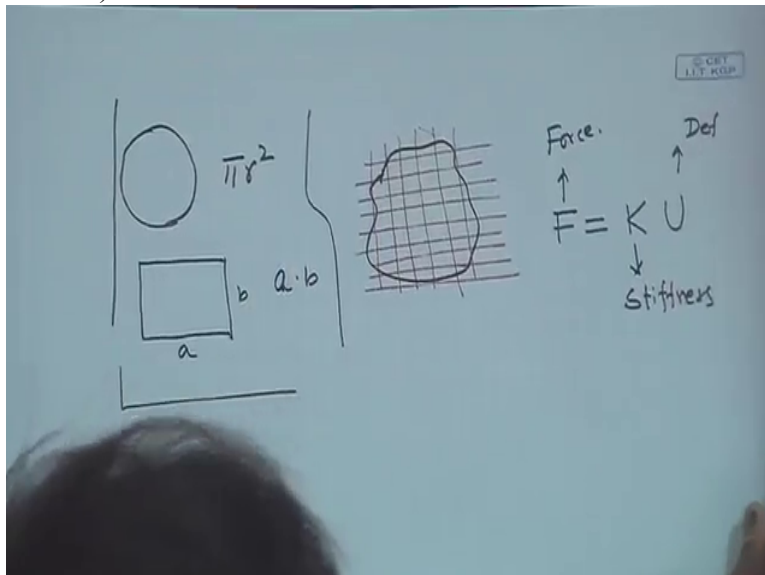 © CET
I.I.T. KGP
πr²
a·b
b
a
Force.
Def
F = K U
Stiffness